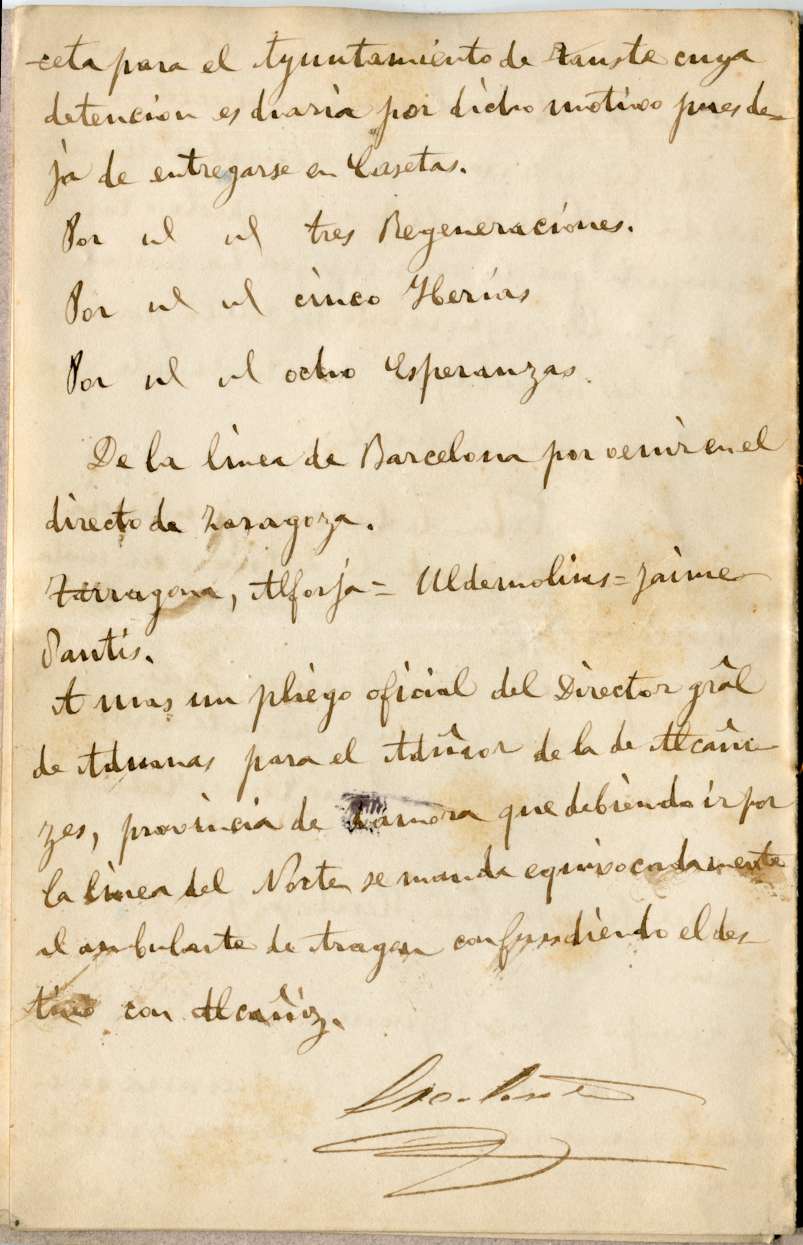 ceta para el Ayuntamiento de Tauste cuya
detencion es diaria por dicho motivo pues de-
ja de entregarse en Casetas.
Por id id tres Regeneraciones.
Por id id cinco Iberias
Por id id ocho Esperanzas.
De la linea de Barcelona por venir en el
directo de Zaragoza.
Tarragona, Alforja = Uldemolins = Jaime
Pantis.
A mas un pliego oficial del Director gral
de Aduanas para el Admor de la de Alcañi-
zes, provincia de Zamora que debiendo ir por
la linea del Norte, se manda equivocadamente
al ambulante de Aragon confundiendo el des-
tino con Alcañiz.